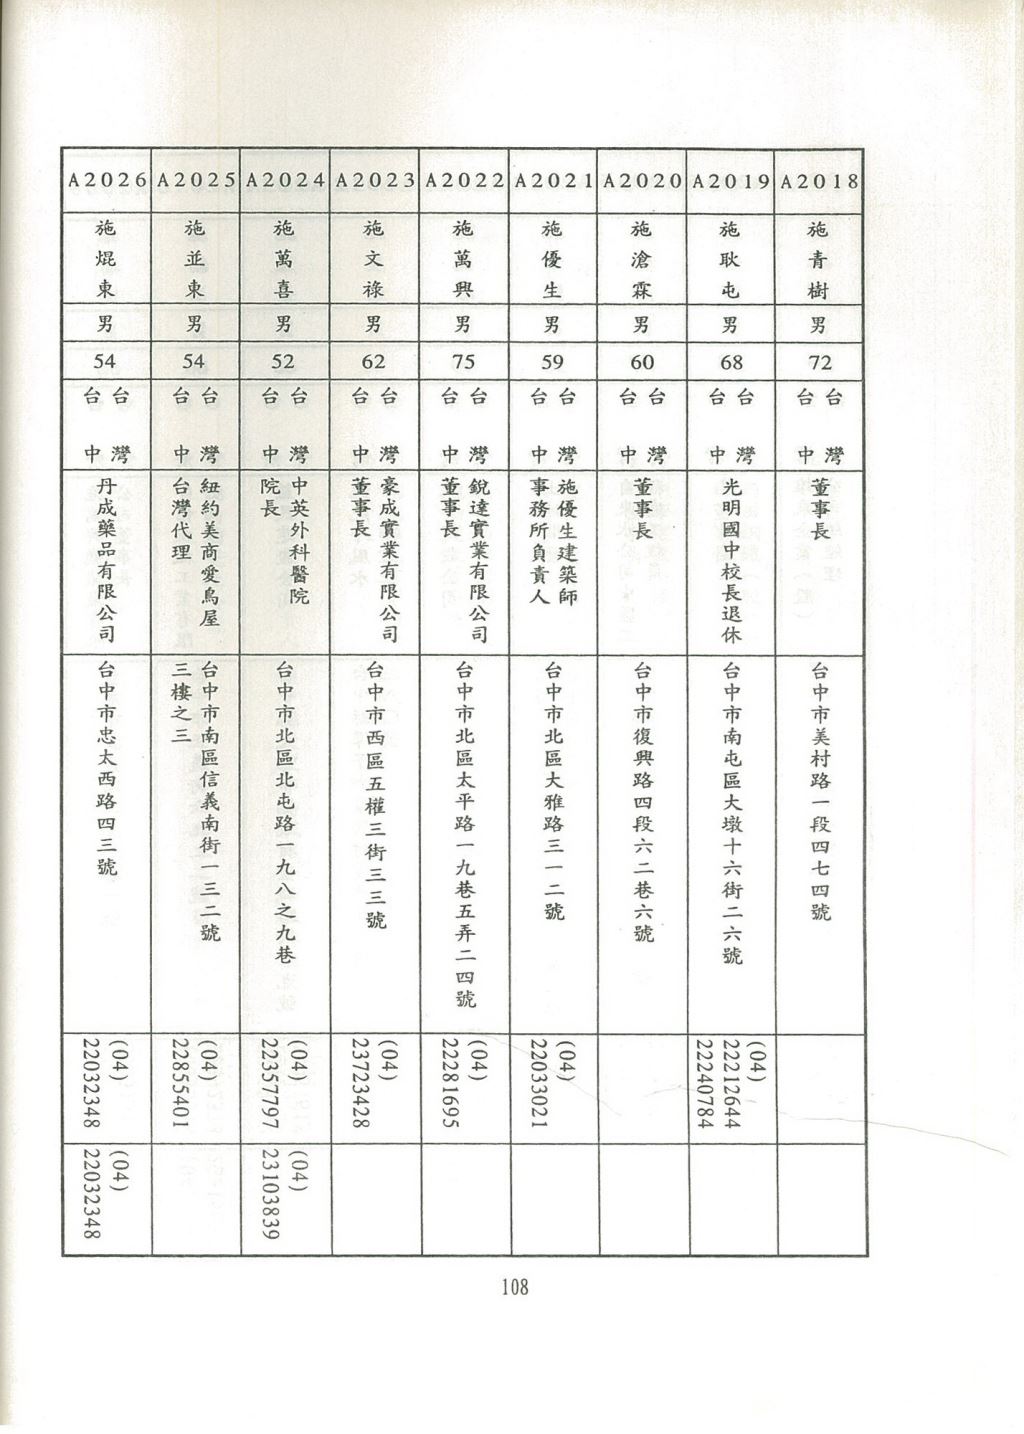 A2018
施青樹
男
72
台灣
台中
董事長
台中市美村路一段四七四號
A2019
施耿屯
男
68
台灣
台中
光明國中校長退休
台中市南屯區大墩十六街二六號
(04)
22212644
22240784
A2020
施滄霖
男
60
台灣
台中
董事長
台中市復興路四段六二巷六號
A2021
施優生
男
59
台灣
台中
施優生建築師
事務所負責人
台中市北區大雅路三一二號
(04)
22033021
A2022
施萬興
男
75
台灣
台中
銳達實業有限公司
董事長
台中市北區太平路一九巷五弄二四號
(04)
22281695
A2023
施文祿
男
62
台灣
台中
豪成實業有限公司
董事長
台中市西區五權三街三三號
(04)
23723428
A2024
施萬喜
男
52
台灣
台中
中英外科醫院
院長
台中市北區北屯路一九八之九巷
(04)
22357797
(04)
23103839
A2025
施並東
男
54
台灣
台中
紐約美商愛鳥屋
台灣代理
台中市南區信義南街一三二號
三樓之三
(04)
22855401
A2026
施焜東
男
54
台灣
台中
丹成藥品有限公司
台中市忠太西路四三號
(04)
22032348
(04)
22032348
108